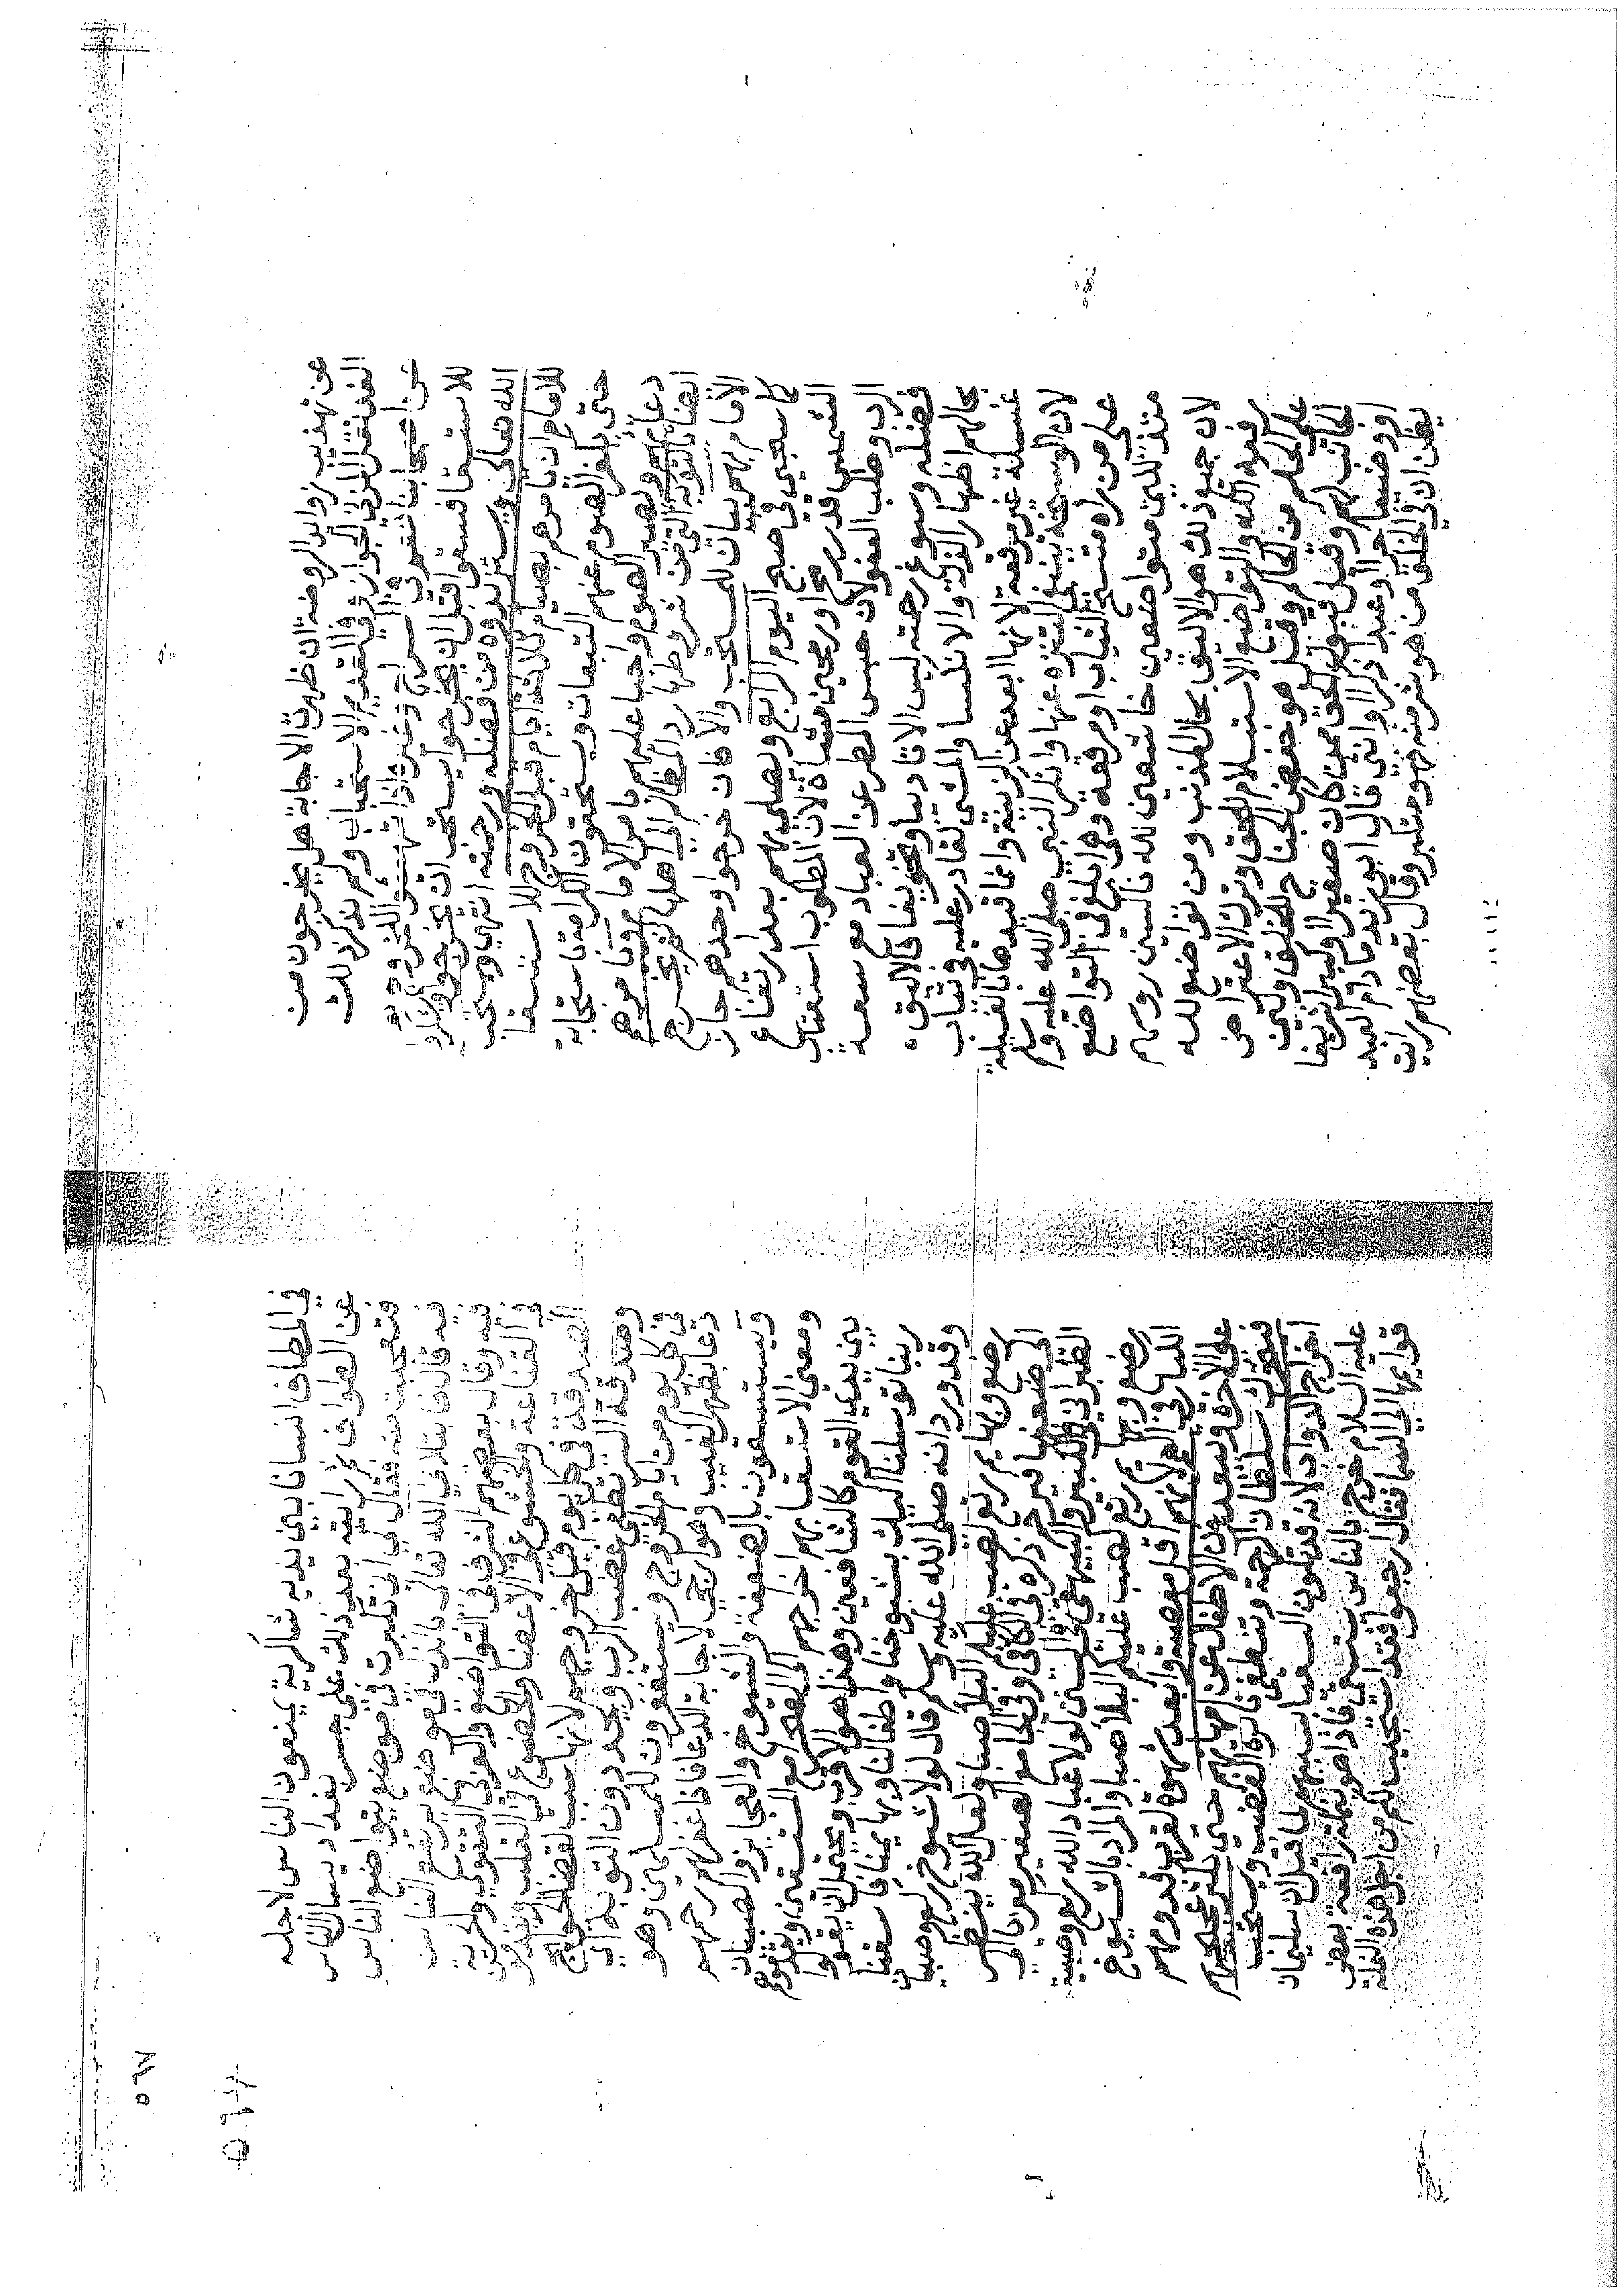 عن تهذيب زوائد الروضة ان ظهرت الاجابة هل يخرجون من
الغد فقل المزني الجواز وفي القديم الاستحباب ولم نذكر ذلك
عن اصحابنا انتهى
للاستسقا فسقوا قبل ان يخرجوا يستحب ان يخرجوا شكرا
الله تعالى ويستزيدوه من فضله ورحمته انتهى ويستحب
للامام ان يامرهم بصيام ثلاثة ايام قبل الخروج للاستسقا
حتى يكفر الصوم عنهم التبعات ويستحقون الكرامة باستجابة
دعائهم ويصير الصوم واجبا عليهم بامر الامام ويامرهم
ايضا بالتوبة التي من شروطها رد المظالم الى اهلها ثم يخرج
الامام بهم بيان للمستحب والا فان خرجوا وحدهم جاز
كما سيجي في صبح اليوم الرابع ويصلي بهم بعد ارتفاع
الشمس قدر رمح او رمحين مشاة لان المطلوب استعطاف
الرب وطلب العفو لان حبس المطر عن العباد مع سعة
فضله وسبوغ رحمته ليس الا تاديبا وتخويفا فالاليق
بحالهم اظهار الذلة والانكسار والمشي لقادر عليه في ثياب
غسيلة غير مرقعة لانها ابعد عن الزينة وانما قيد هنا بالغسيلة
لان الوسخة ينبغي التنزه عنها وانكر النبي صلى الله عليه وسلم
على من راه متسخ الثياب او مرقعة وهي ابلغ في التواضع
متذللين متواضعين خاشعين لله ناكسين روسهم
لان جميع ذلك هو الاليق بحال المذنب ومن تواضع لله
رفعه الله والتواضع الاستسلام للحق وترك الاعتراض
على الحكم من الحاكم وقيل هو خفض الجناح للخلق ولين
الجانب لهم وقيل قبول الحق ممن كان صغيرا او كبيرا شريفا
او وضيعا حرا او عبدا ذكرا او انثى قال ابو يزيد ما دام العبد
يظن ان في الخلق من هو شر منه فهو متكبر وقال بعضهم رايت
في المطاف انسانا بين يديه شاكرية يمنعون الناس لاجله
عن الطواف ثم رايته بعد ذلك على جسر بغداد يسال الناس
فتعجبت منه فقال لي اني تكبرت في موضع يتواضع الناس
فيه قال فابتلاني الله تعالى بالذل في موضع يرتفع الناس
فيه وقال بعضهم الشرف في التواضع والعز في التقوى والحرية
في القناعة والخشوع في الاعضا والخضوع في القلب ويقدمون
الصدقة في كل يوم قبل خروجهم لانها سبب لقضا الحوائج
وصدقة السر تطفي غضب الرب ويجددون التوبة اي
في كل يوم من ايام الخروج ويستغفرون للمسلمين وهو
دعا بظهر الغيب وهو ارجى لاجابة الدعا فاذا غفر لهم رحمهم
ويستسقون بالضعفة والشيوخ والعجايز والصبيان
ومعنى الاستسقا بهم اخراجهم الى الصحرا مع المستسقين ويقدمونهم
بين يدي القوم كالشافعين وهذا هو الاقرب ويحتمل ان يقولوا
ربنا توسلنا اليك بشيوخنا واطفالنا وبهايمنا فاسقنا
وقد ورد انه صلى الله عليه وسلم قال لولا شيوخ ركع وصبيان
رضع وبهايم رتع لصب عليكم البلا صبا ولعل الله ينظر
الى ضعفها فيرحم ذكره في الكافي وفي الجامع الصغير معزيا الى
الطبراني في الكبير والبيهقي في السنن لولا عباد الله ركع وصبية
رضع وبهايم رتع لصب عليكم البلا صبا والمراد بالشيوخ
الكبار في العمر لانهم اقل معصية وابعد شهوة لقرب قدومهم
على الاخرة ويبعدون الاطفال عن امهاتهم حتى يكثر عجيجهم
فيتحرك سلطان الرحمة وتنطفي نائرة الغضب ويستحب
اخراج الدواب لانه قد تكون السقيا بسببهم لما قيل ان سليمان
عليه السلام خرج بالناس يستسقي فاذا هو بنملة رافعة بعض
قوائمها الى السما فقال ارجعوا فقد استجيب لكم من اجل هذه النملة
٥٦٧